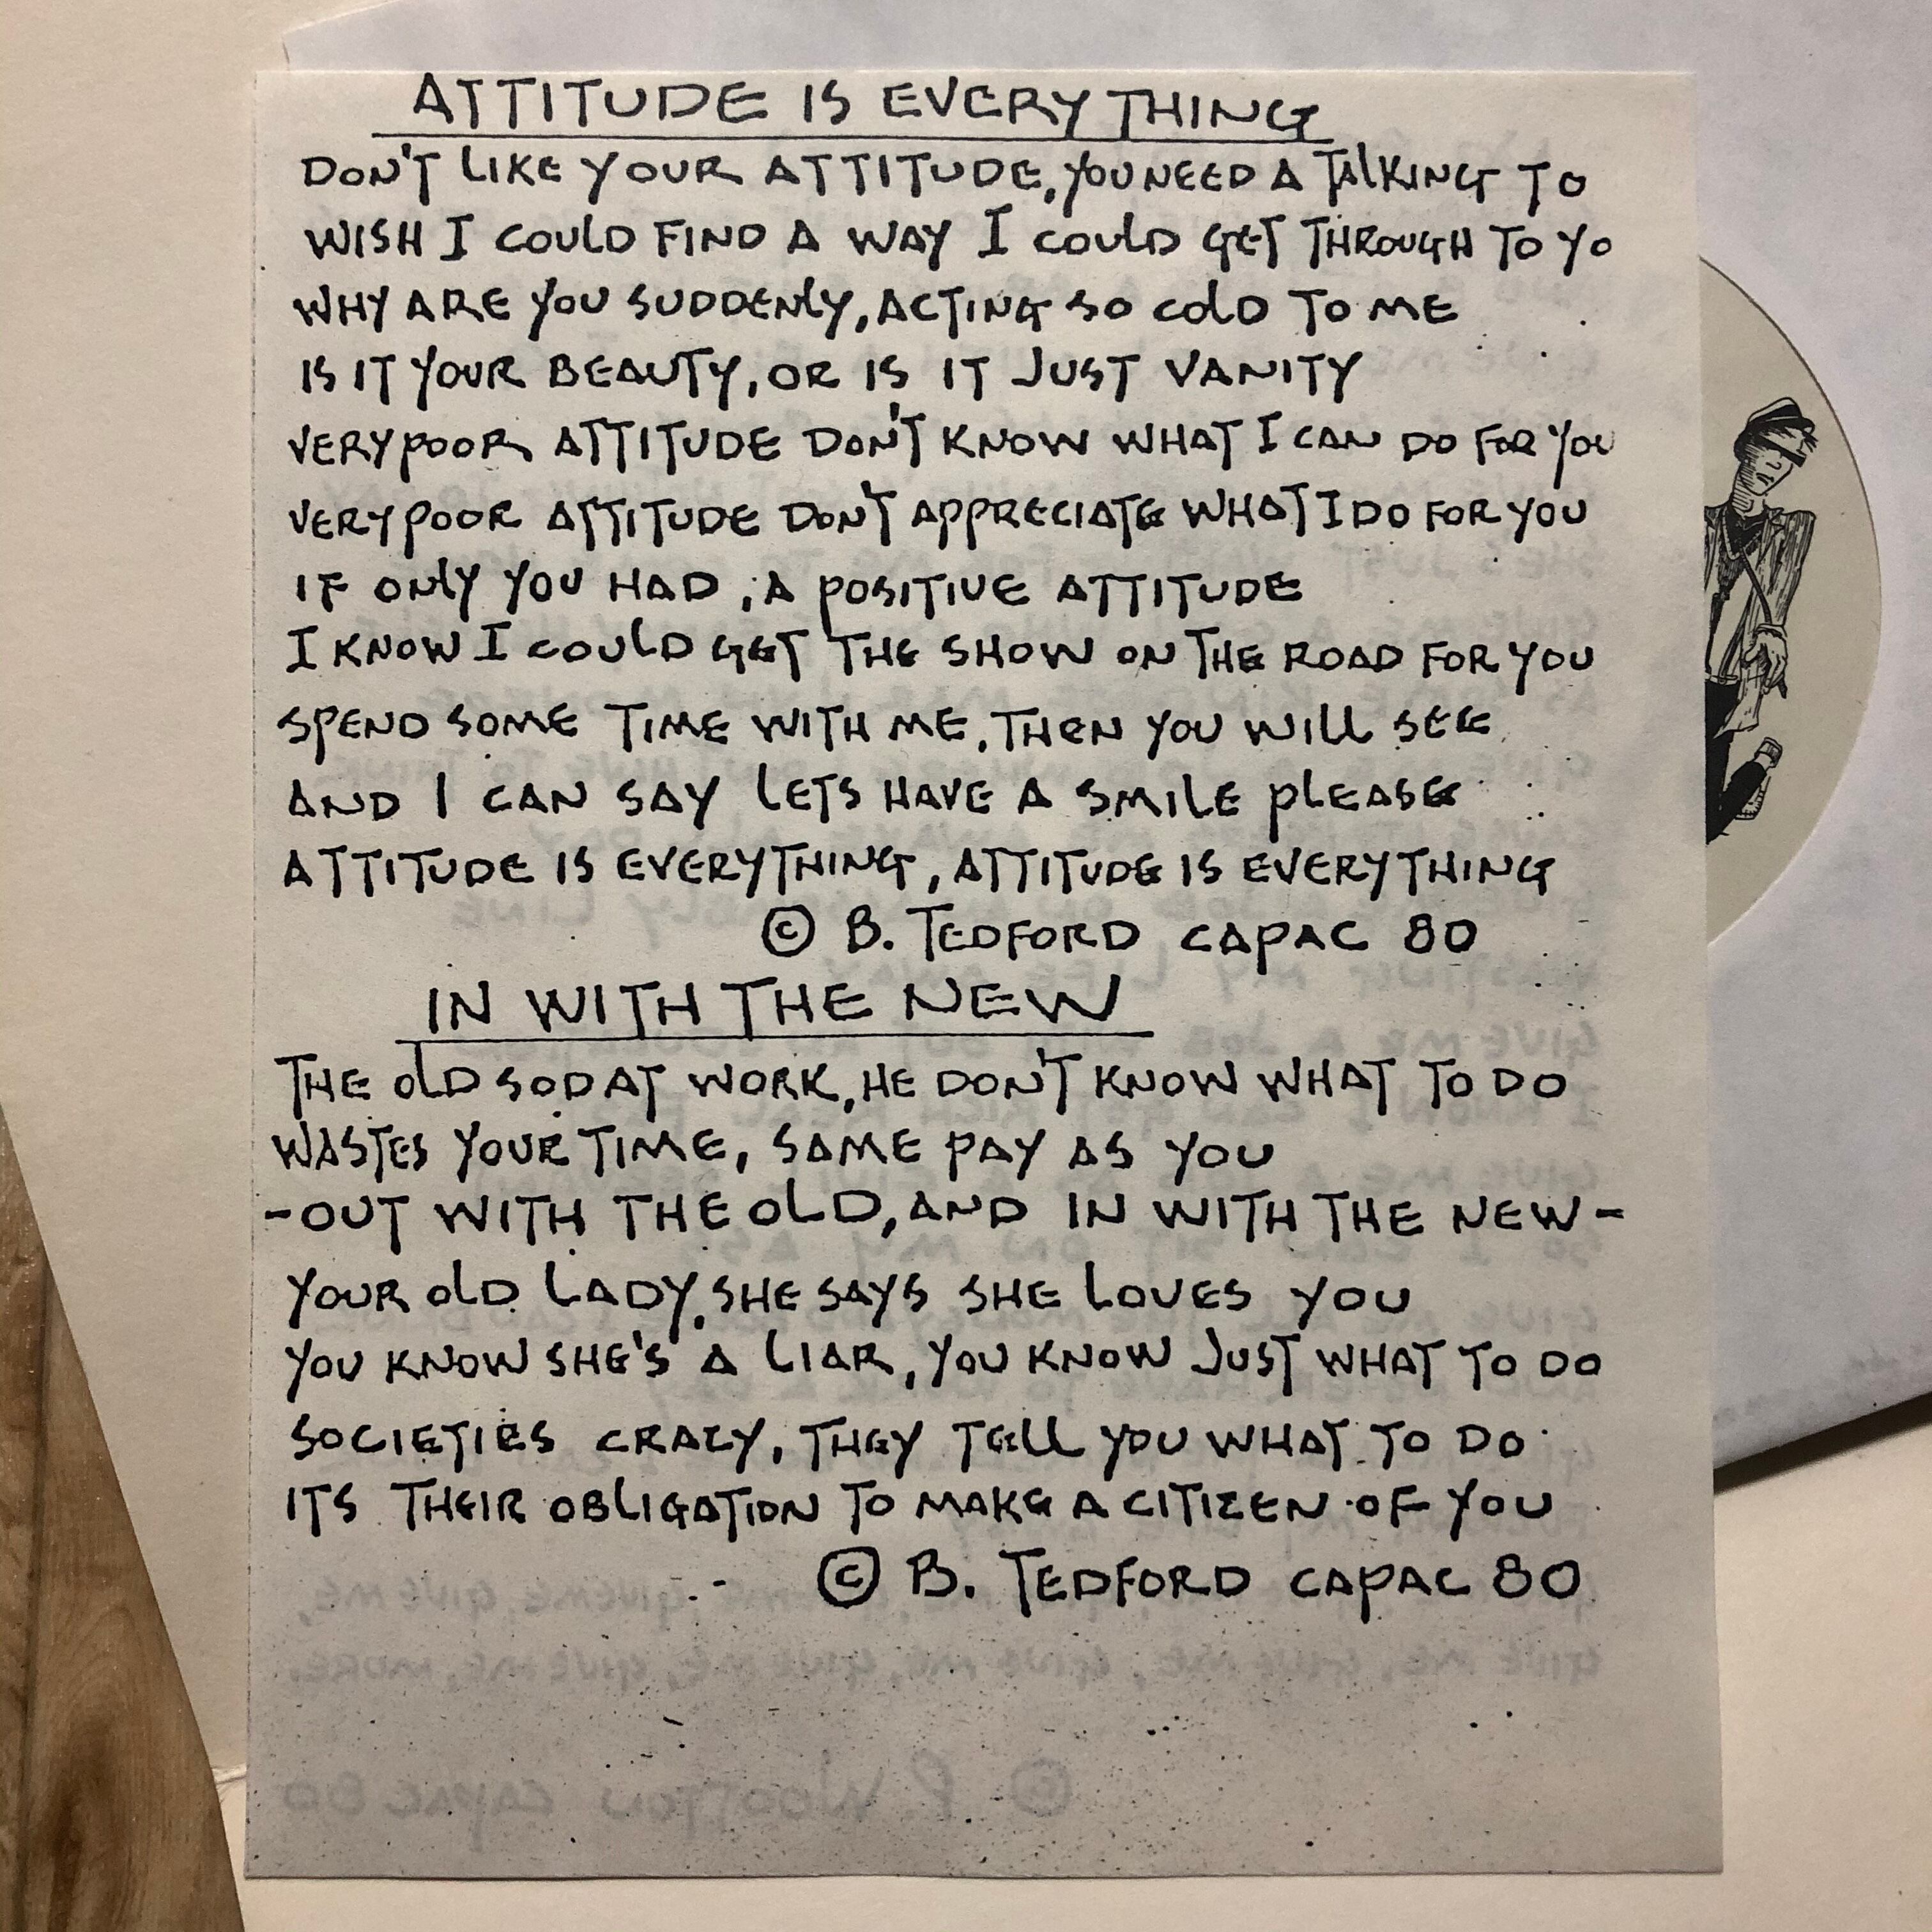 ATTITUDE IS EVERYTHING
DON'T LIKE YOUR ATTITUDE, YOU NEED A TALKING TO
WISH I COULD FIND A WAY I COULD GET THROUGH TO YO
WHY ARE YOU SUDDENLY, ACTING SO COLD TO ME
IS IT YOUR BEAUTY, OR IS IT JUST VANITY
VERY POOR ATTITUDE DON'T KNOW WHAT I CAN DO FOR YOU
VERY POOR ATTITUDE DON'T APPRECIATE WHAT I DO FOR YOU
IF ONLY YOU HAD, A POSITIVE ATTITUDE
I KNOW I COULD GET THE SHOW ON THE ROAD FOR YOU
SPEND SOME TIME WITH ME, THEN YOU WILL SEE
AND I CAN SAY LETS HAVE A SMILE PLEASE
ATTITUDE IS EVERYTHING, ATTITUDE IS EVERYTHING
© B. TEDFORD CAPAC 80
IN WITH THE NEW
THE OLD SOD AT WORK, HE DON'T KNOW WHAT TO DO
WASTES YOUR TIME, SAME PAY AS YOU
-OUT WITH THE OLD, AND IN WITH THE NEW-
YOUR OLD LADY, SHE SAYS SHE LOVES YOU
YOU KNOW SHE'S A LIAR, YOU KNOW JUST WHAT TO DO
SOCIETIES CRAZY, THEY TELL YOU WHAT TO DO
ITS THEIR OBLIGATION TO MAKE A CITIZEN OF YOU
© B. TEDFORD CAPAC 80
GIVE ME, GIVE ME, GIVE ME, GIVE ME, GIVE ME, MORE.
© P. WOOTTON CAPAC 80